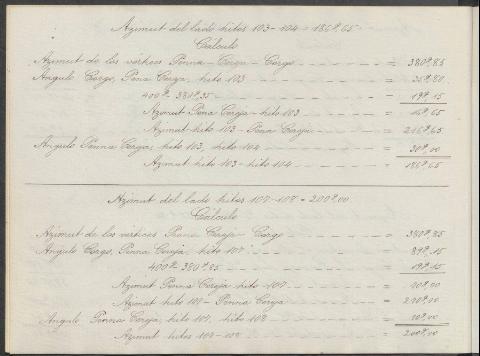 Azimut del lado hitos 103-104 = 186g,65
Cálculo
Azimut de los vértices Penna Cerga - Corgo - = 380g,85
Angulo Corgo, Pena Cerga, hito 103 = 35g,80
400g - 380g,85 = 19g,15
Azimut Pena Cerga - hito 103 = 16g,65
Azimut hito 103 - Pena Cerga = 216g,65
Angulo Penna Cerga, hito 103, hito 104 = 30g,00
Azimut hito 103 - hito 104 = 186g,65
Azimut del lado hitos 107-108 = 200g,00
Cálculo
Azimut de los vértices Penna Cerga - Corgo = 380g,85
Angulo Corgo, Penna Cerga, hito 107 = 39g,15
400g - 380g,85 = 19g,15
Azimut Penna Cerga hito 107 = 20g,00
Azimut hito 107 - Penna Cerga = 220g,00
Angulo Penna Cerga, hito 107, hito 108 = 20g,00
Azimut hitos 107-108 = 200g,00